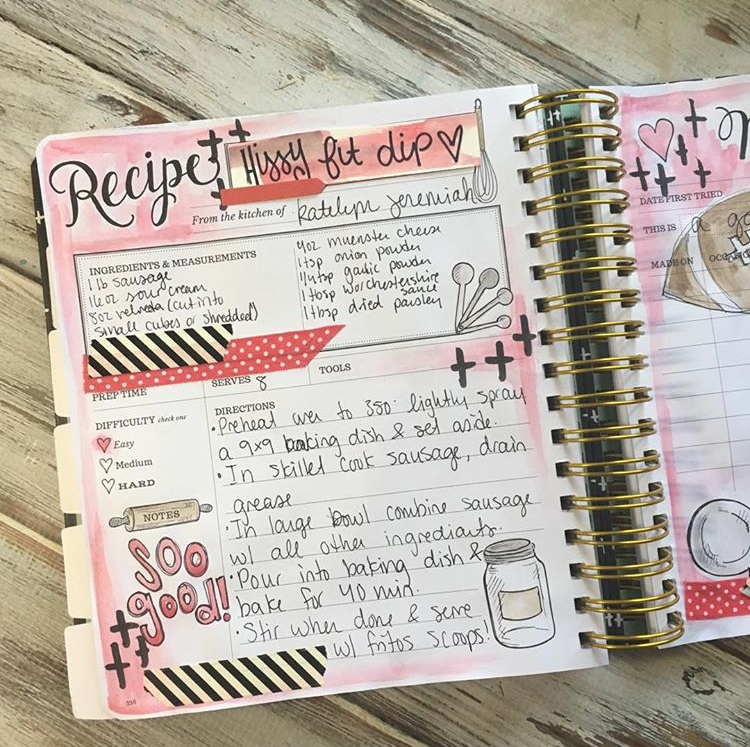 Recipe
Hissy fit dip
From the kitchen of Katelyn Jeremiah
INGREDIENTS & MEASUREMENTS
1 lb sausage
16oz sour cream
8oz velveeta (cut into
small cubes or shredded)
4oz muenster cheese
1 tsp onion powder
1/4tsp garlic powder
1 tbsp Worchestershire
sauce
1 tbsp dried parsley
PREP TIME
SERVES 8
TOOLS
DIFFICULTY check one
Easy
Medium
HARD
NOTES
SOO
good!
DIRECTIONS
• Preheat oven to 350. lightly spray
a 9x9 baking dish & set aside.
• In skillet cook sausage, drain
grease
• In large bowl combine sausage
w/ all other ingredients.
• Pour into baking dish &
bake for 40 min.
• Stir when done & serve
w/ fritos scoops!
DATE FIRST TRIED
THIS IS a
MADE ON